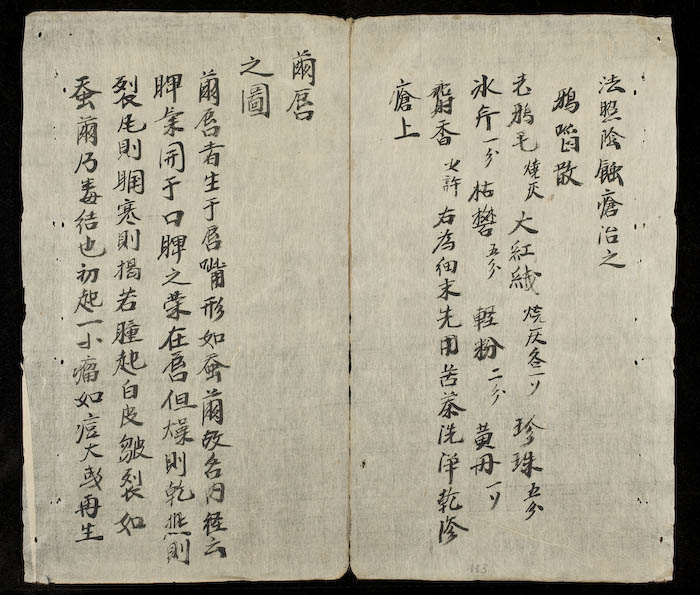 法照陰蝕瘡治之
鴉啗散
老鴉毛燒灰 大紅絨燒灰各一刄 珍珠五分
冰片一分 枯礬五分 輕粉二分 黃丹一刄
麝香少許 右為细末先用苦茶洗淨乾滲
瘡上
繭唇
之圖
繭唇者生于唇嘴形如蚕繭故名内経云
脾氣開于口脾之榮在唇但燥則乾熱則
裂風則𥆧寒則揭若腫起白皮皺裂如
蚕繭乃毒結也初起一小瘤如痘大或再生
113